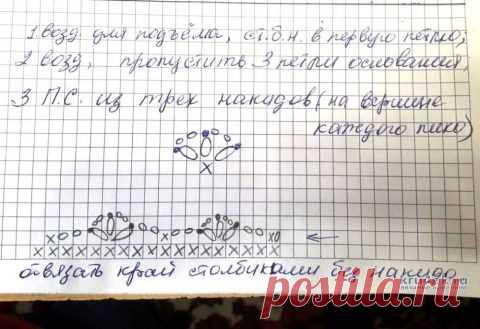 1 возд. для подъёма, ст.б.н. в первую петлю;
2 возд, пропустить 3 петли основания,
3 П.С. из трех накидов (на вершине
каждого пико)
отвязать край столбиками без накида
postila.ru